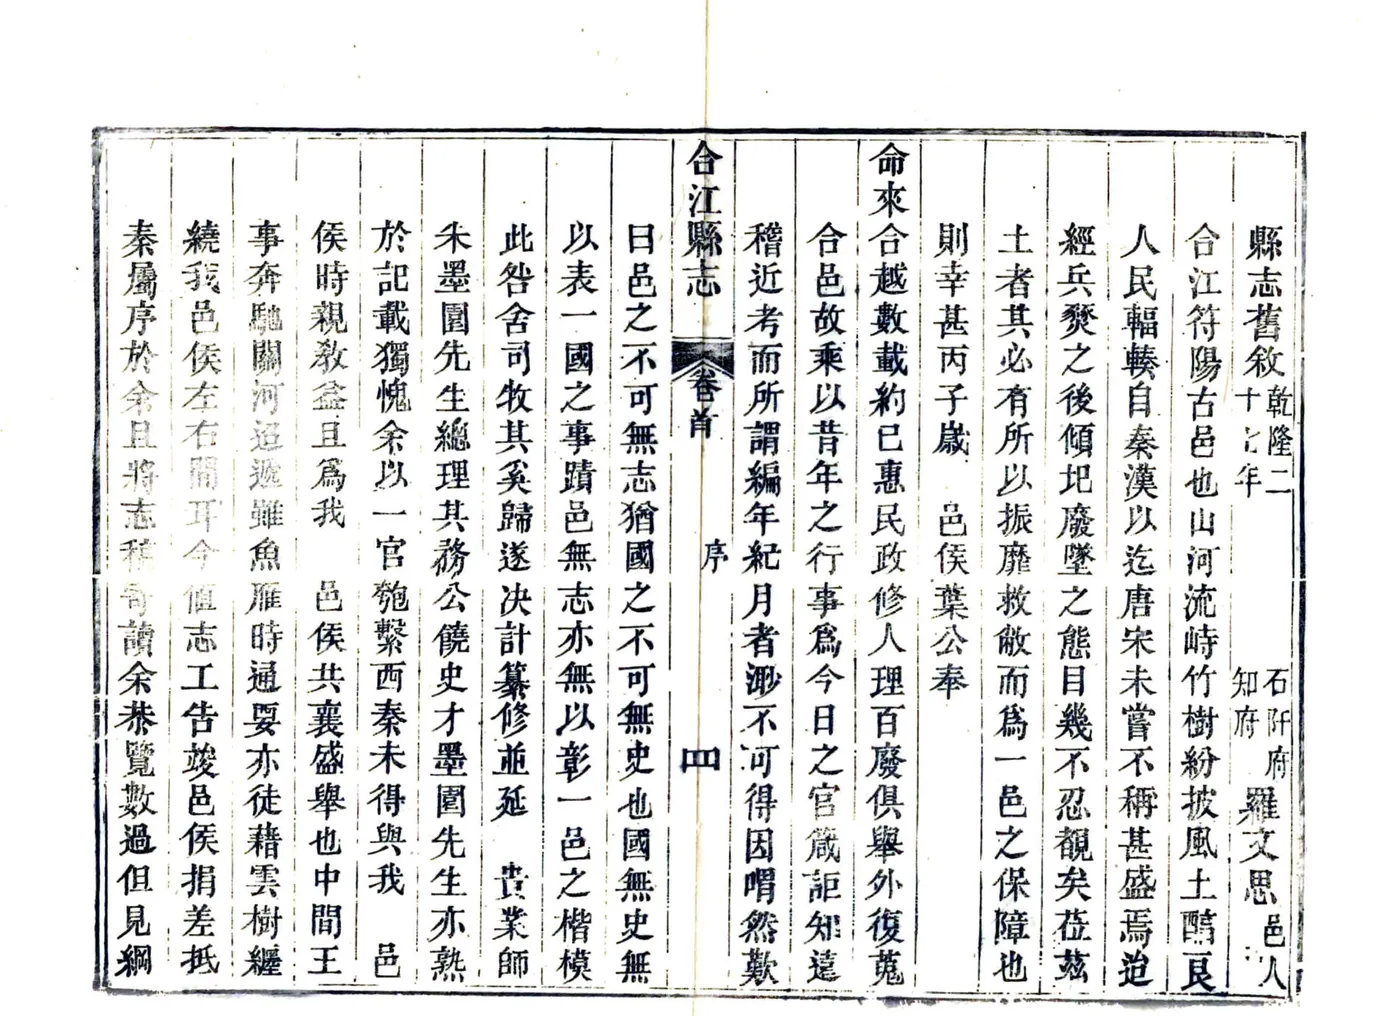 縣志舊敘乾隆二十七年 石阡府知府羅文思邑人
合江符陽古邑也山河流峙竹樹紛披風土醕良
人民輻輳自秦漢以迄唐宋未嘗不稱甚盛焉迨
經兵燹之後傾圯廢墜之態目幾不忍覩矣莅茲
土者其必有所以振靡救敝而為一邑之保障也
則幸甚丙子歲 邑侯葉公奉
命來合越數載約已惠民政修人理百廢俱舉外復蒐
合邑故乘以昔年之行事為今日之官箴詎知遠
稽近考而所謂編年紀月者渺不可得因喟然歎
合江縣志 卷首 序 四
曰邑之不可無志猶國之不可無史也國無史無
以表一國之事蹟邑無志亦無以彰一邑之楷模
此咎舍司牧其奚歸遂決計纂修並延 貴業師
朱墨園先生總理其務公饒史才墨園先生亦熟
於記載獨愧余以一官匏繫西秦未得與我 邑
侯時親敎益且為我 邑侯共襄盛舉也中間王
事奔馳關河迢遞雖魚雁時通要亦徒藉雲樹纏
繞我邑侯左右間耳今值志工告竣邑侯捐差抵
秦屬序於余且將志稿寄讀余恭覽數過但見綱